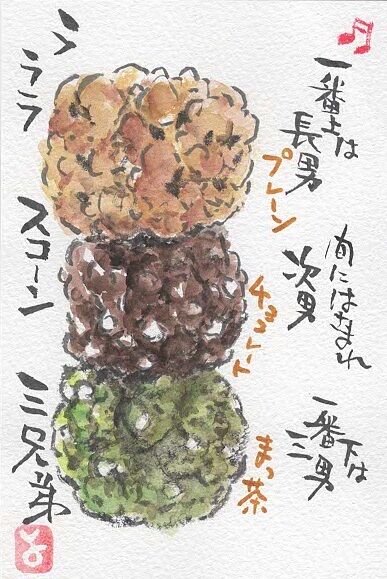 一番上は
長男
プレーン
間にはさまれ
次男
チョコレート
一番下は
三男
まっ茶
ラララ
スコーン
三兄弟